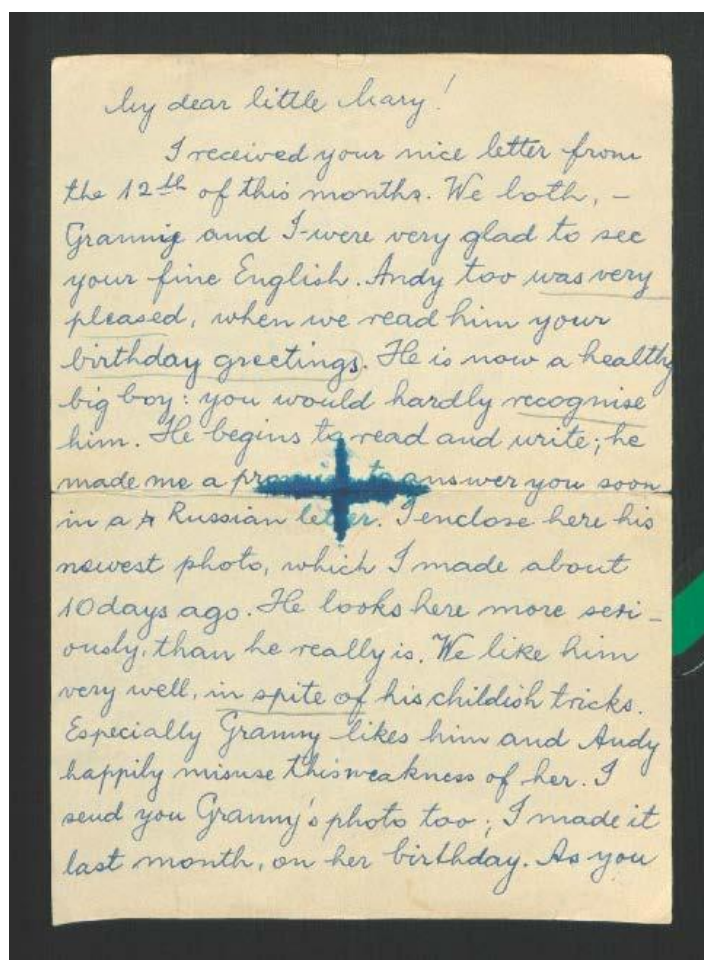 My dear little Mary!
I received your nice letter from
the 12th of this months. We both, –
Grannie and I-were very glad to see
your fine English. Andy too was very
pleased, when we read him your
birthday greetings. He is now a healthy
big boy: you would hardly recognise
him. He begins to read and write; he
made me a to answer you soon
in a Russian letter. I enclose here his
newest photo, which I made about
10 days ago. He looks here more seri-
ously, than he really is. We like him
very well, in spite of his childish tricks.
Especially Granny likes him and Andy
happily misuse this weakness of her. I
send you Granny's photo too; I made it
last month, on her birthday. As you